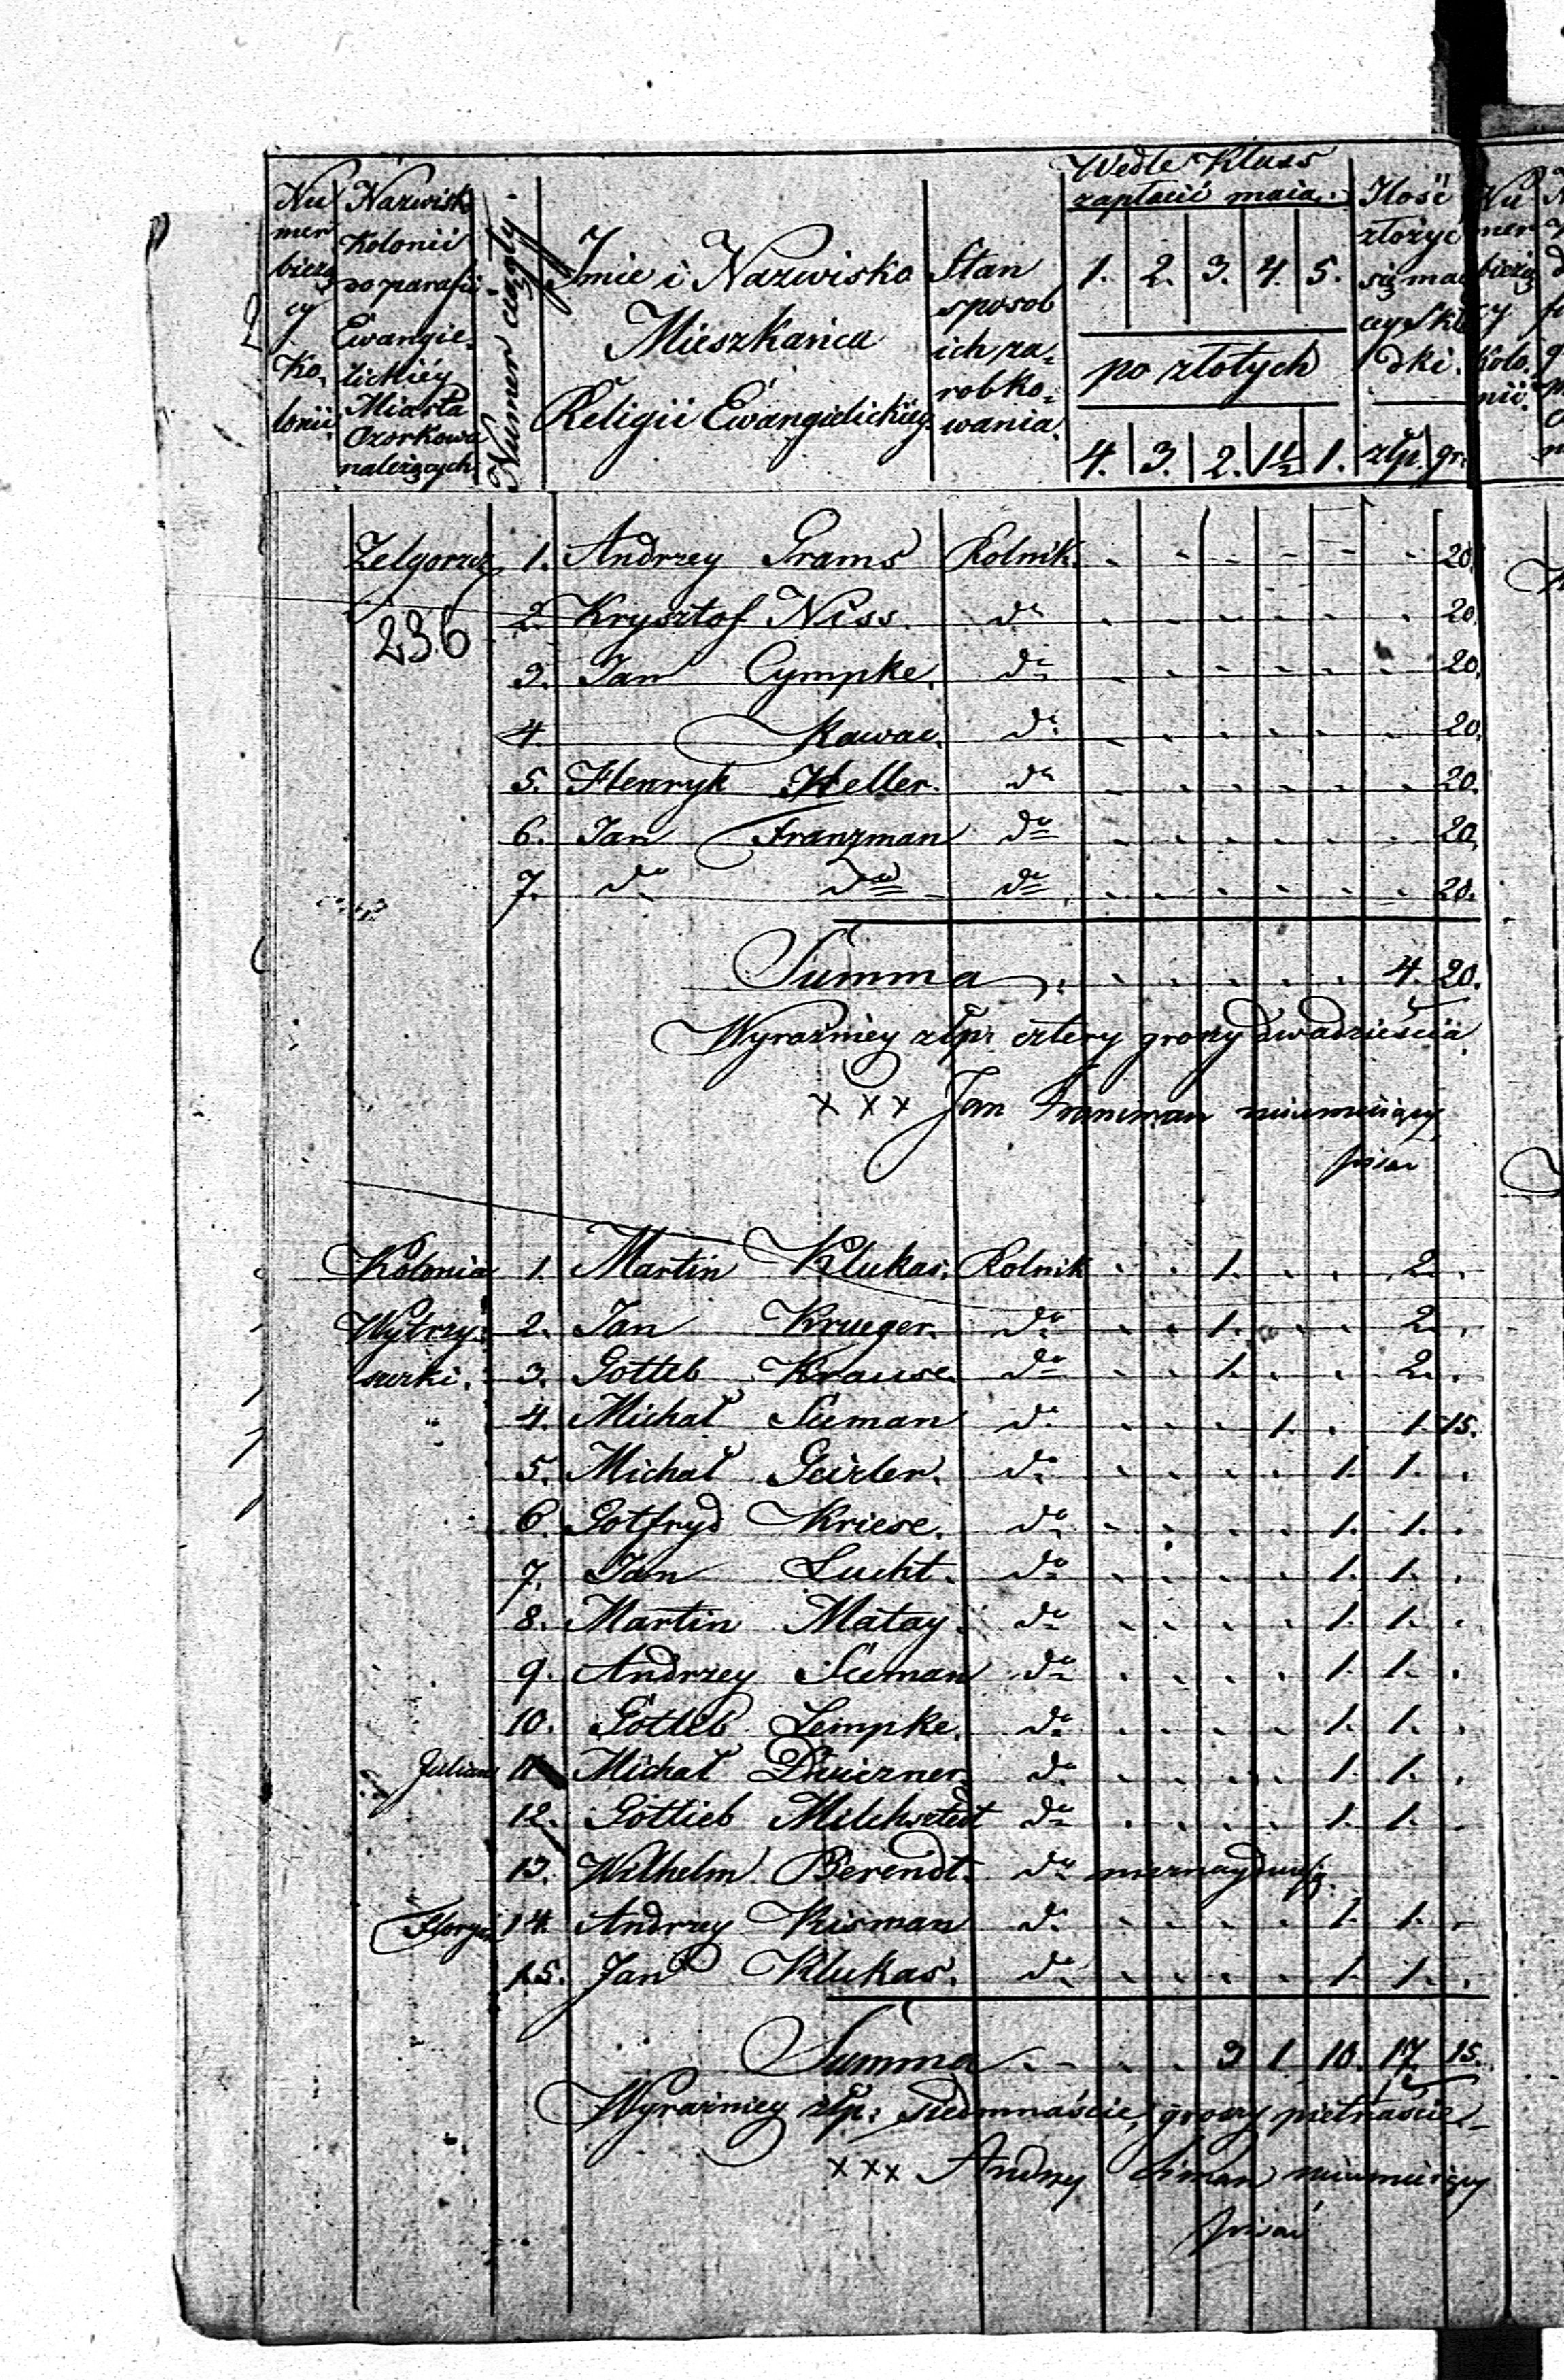 Nu
mer
bieżą
cy
Ko,
lonii.
Nazwisk
Kolonii
do parafii
Ewangie,
lickiéy
Miasta
Ozorkowa
należących
Numer ciągły.
Imie i Nazwisko
Mieszkańca
Religii Ewangielickiey.
Stan
sposob
ich za,
robko,
wania.
Wedle Klass
zapłacić maią.
1. 2. 3. 4. 5.
po złotych
4. 3. 2. 1½ 1.
Ilość
złożyć
się maią
cey Skła
dki.
złp. gr.
Zelgoszcz 1. Andrzey Grams Rolnik. 20.
236
2. Krysztof Niss. do 20.
3. Jan Cympke. do 20.
4. Kawac. do 20.
5. Henryk Heller. do 20.
6. Jan Franzman do 20.
7. do do do 20.
Summa 4. 20.
Wyrazniey złp: cztery groszy dwadzieścia
x x x Jan Francman nieumieiący
pisać
Kolonia 1. Martin Klukas. Rolnik 1. 2.
Wytrzy, 2. Jan Krueger. do 1. 2.
szczki. 3. Gottlib Krause. do 1. 2.
" 4. Michał Sieman do 1. 1. 15.
5. Michał Geisler. do 1. 1.
6. Gotfryd Kriese. do 1. 1.
7. Jan Lucht. do 1. 1.
8. Martin Matay. do 1. 1.
9. Andrzey Sieman do 1. 1.
10. Gottlib Lempke. do 1. 1.
Julian 11 Michał do 1. 1.
12. Gottlieb Milchsztedt do 1. 1.
13. Wilhelm Berendt. do nieznayduie się.
Floryan 14. Andrzey Risman do 1. 1.
15. Jan Klukas. do 1. 1.
Summa 3 1 10. 17. 15.
Wyrazniey złp: siedmnaście, groszy pietnaście
x x x Andrzy Siman nieumieiący
pisać